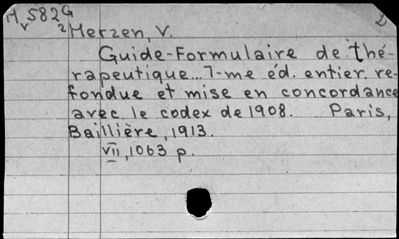 H582G 2
v 2Herzen, V.
Guide-Formulaire de thé-
rapeutique...7-me éd. entier. re-
fondue et mise en concordance
avec le codex de 1908. Paris,
Baillière, 1913.
VII, 1063 p.